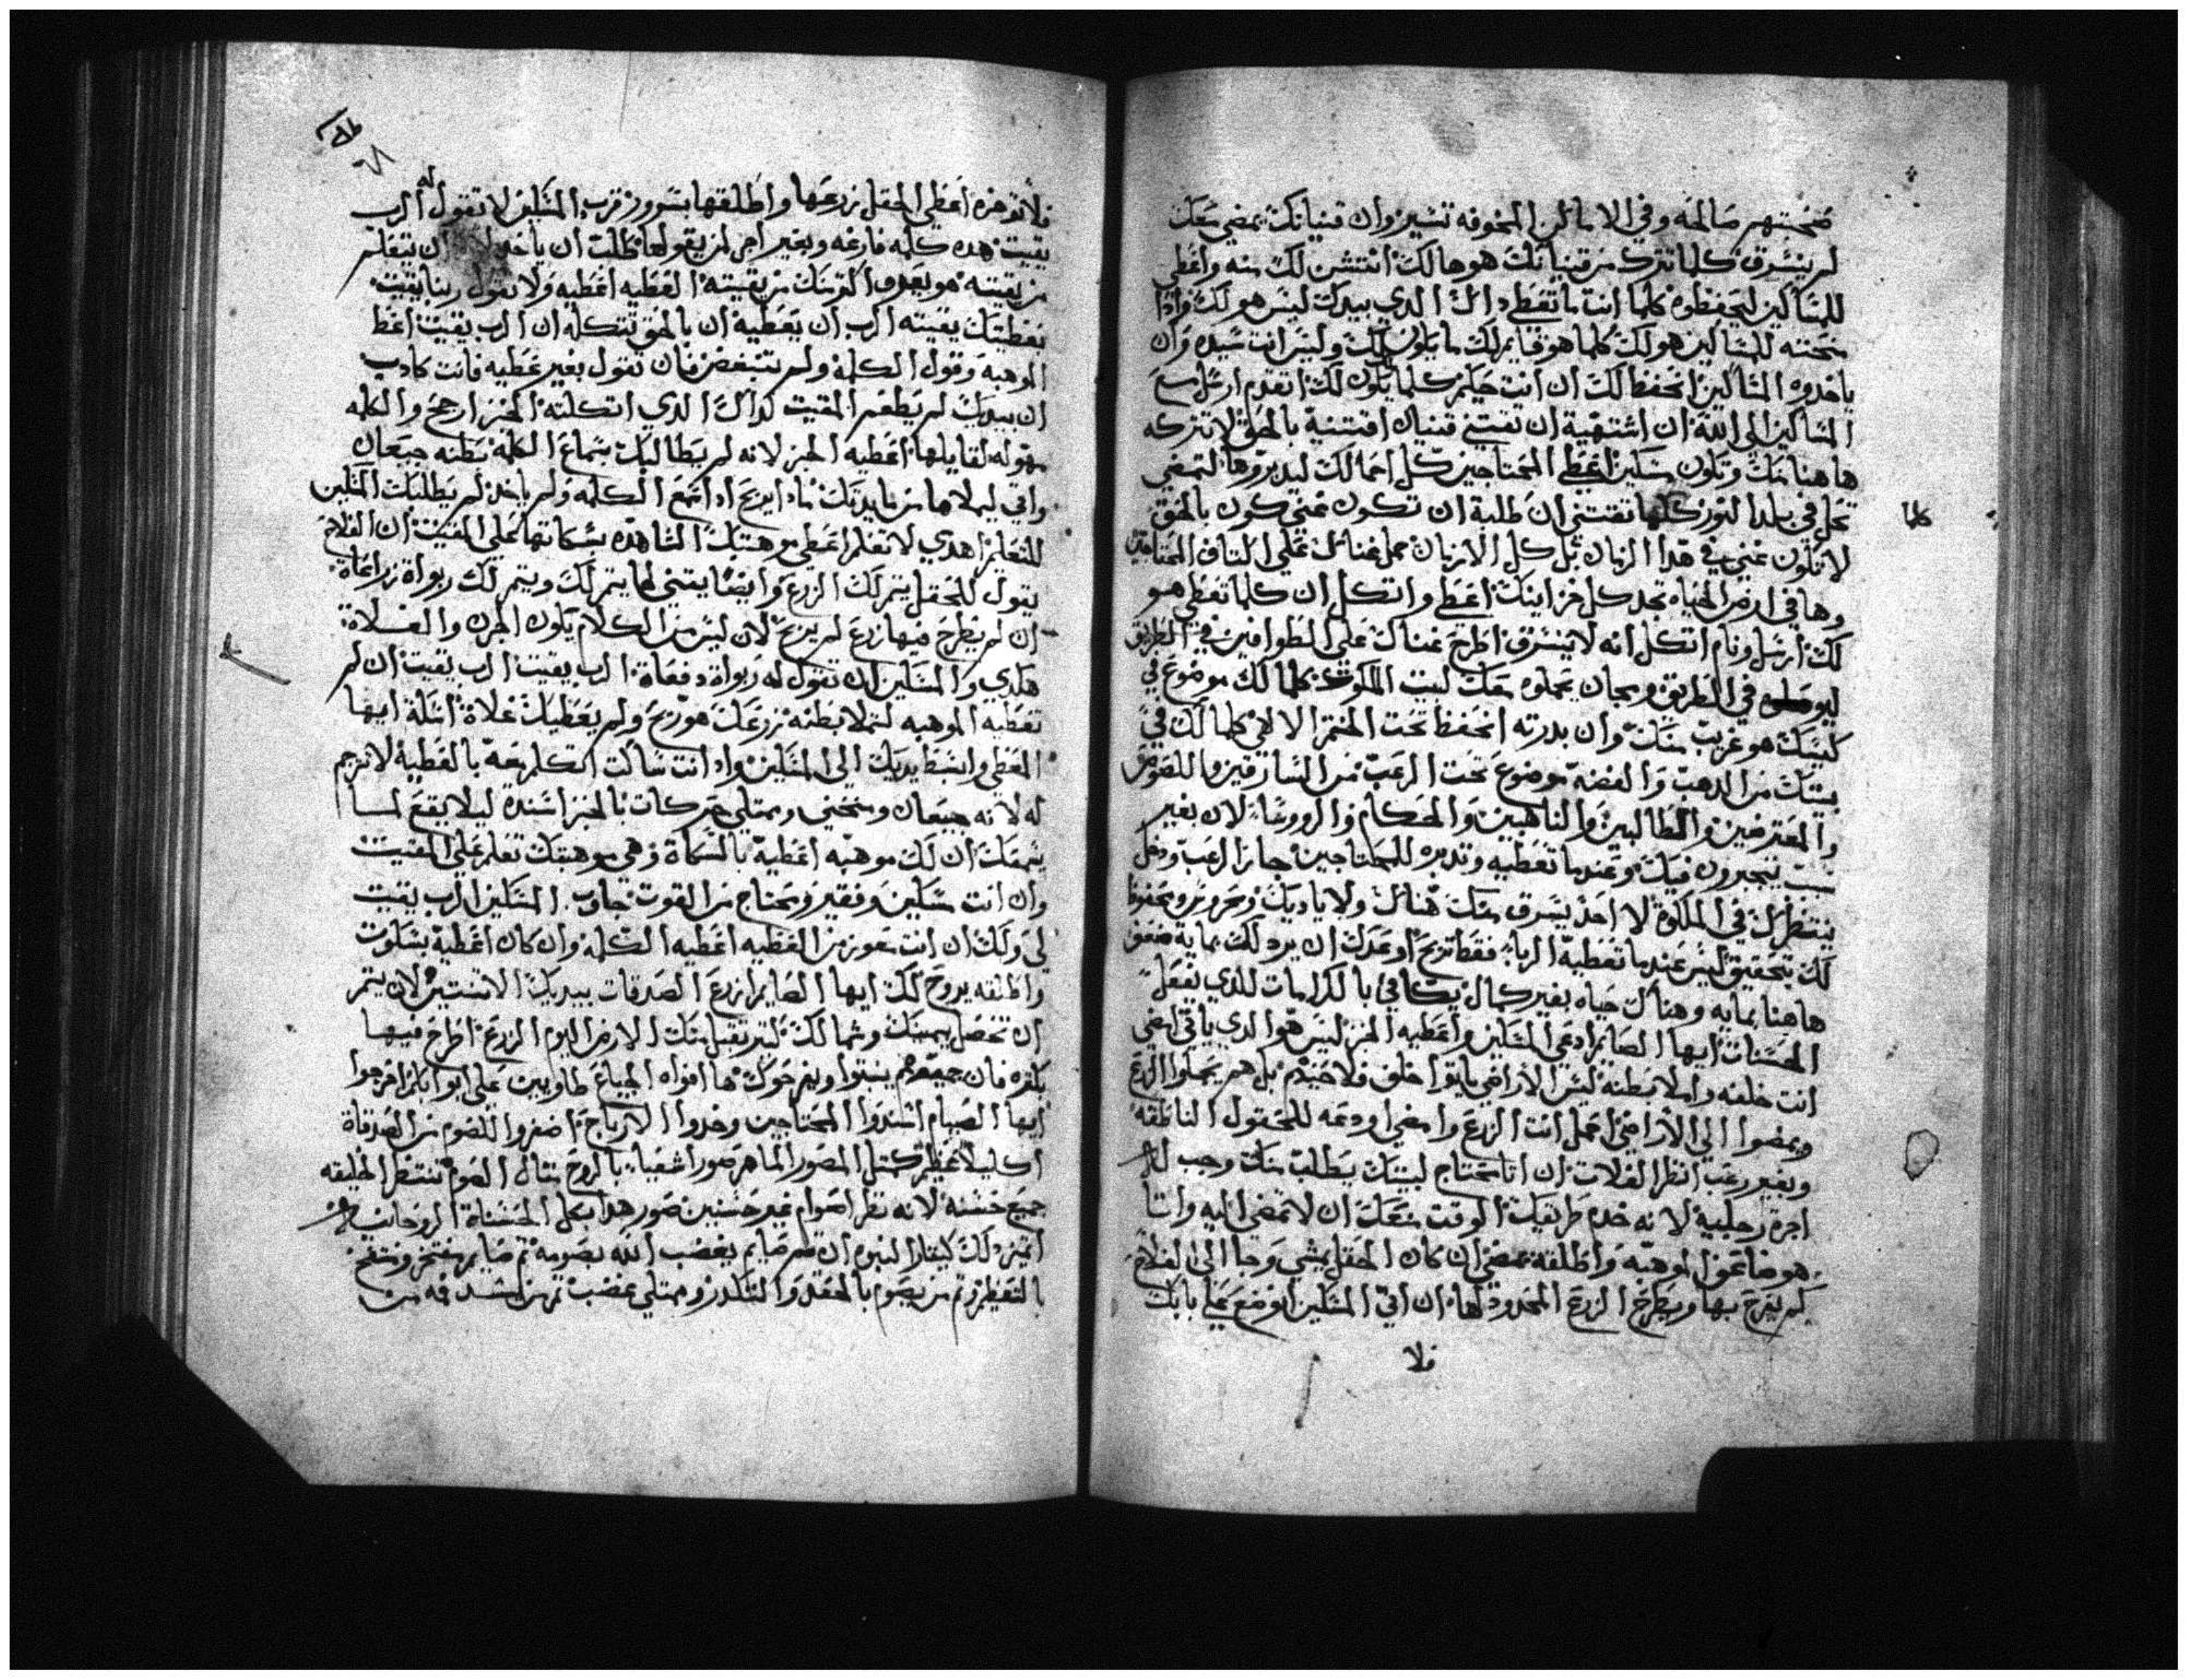 صحبتهم صالحه وفي الاماكن المخوفه تسير وان قنيانك يمضي معك
لم ينسرق كلما تترك من قنيانك هو هالك انتشن لك منه واعطي
للمساكين ليحفظوه كلما انت ما تعطي داك الدي بيدك ليس هو لك وادا
منحته للمساكين هو لك كلما هو قايم لك ما يكون لك وليس انت سيده وان
ياخدوه المساكين انحفظ لك ان انت حكيم كلما يكون لك اتقدم ارسل مع
المساكين الي الله ان اشتهية ان تقتني قنيان اقتنية بالحق لا تتركه
هاهنا منك وتكون مسكين اعطي المحتاجين كل احمالك ليديروها لتمضي
تحل في بلد النور كلها تقتني ان طلبة ان تكون غني كون بالحق
لا تكون غني في هدا الزمان بل كل الازمان حمل غناك علي اكتاف المحتاجين
وها في ارض الحياه تجد كل خزاينك اعطي واتكل ان كلما تعطي هو
لك ارسل ونام اتكل انه لا ينسرق اطرح غناك علي الطوافين في الطريق
في الطريق ومجان يحملوه معك لبيت الملكوت كلما لك موضوع في
كيسك هو غريب منك وان بدرته انحفظ تحت الختم الالاهي كلما لك في
بيتك من الدهب والفضه موضوع تحت الرعب من السارقين واللصوص
والمعترضين والطالبين والناهبين والحكام والرووسا لان بغير
سبب يتجبرون فيك وعندما تعطيه وتديره للمحتاجين جاز الرعب ودخل
ينتظرك في الملكوة لا احد يسرق منك هناك ولا ياديك ومحروس ومحفوظ
لك بتحقيق ليس عندما تعطية الربا فقط تربح اوعدك ان يرد لك بماية ضعف
هاهنا بمايه وهناك حياه بغير كمال يكافي بالكرامات للدي يفعل
الحسنات ايها الصايم ادعي المسكين واعطيه الخبز ليس هو الدي ياتي امضي
انت خلفه واملا بطنه ليس الاراضي ياتوا خلف فلاحينهم بل هم يحملوا الزرع
ويمضوا الي الاراضي احمل انت الزرع وامضي اودعه للحقول الناطقه
وبغير رعب انظر الغلات ان اتا محتاج لبيتك يطلب منك وجب له
اجرة رجليه لانه خدم طريقك الوقت منعك ان لا تمضي اليه واتا
هو صانع الموهبه واطلقه يمضي ان كان الحقل يمشي وجا الي الفلاح
كم يفرح بها ويطرح الزرع المحدود لها ان اتي المسكين اوضع علي بابك
فلا
كلما
فلا توخره اعطي الحقل زرعها واطلقها بسرور قرب المسكين لا تقول له الرب
يقيت هده كلمه فارغه وبغير اجر لمن يقولها طلب ان ياخد ان يتعلم
من يقيته هو يعرف اكتر منك من يقيته العطيه اعطيه ولا تقول ربنا يقيت
بعطيتك يقيته الرب ان يعطية ان بالحق تتكله ان الرب يقيت اعط
الموهبه وقول الكلمة ولم تتبغض فان تقول بغير عطيه فانت كادب
ان بيديك لم يطعم المقيت كداك الدي اتكلته الخبز ارجح والكلمه
مهوله لقايلها اعطيه الخبز لانه لم يطالبك بسماع الكلمة بطنه جيعان
واتي ليملاها من مايدتك مادا يربح ادا سمع الكلمه ولم ياخد لم يطلبك المسكين
للتعليم اهدي لا تعلم اعطي موهبتك الشاهده بسكاتها علي المقيت ان الفلاح
يقول للحقل يتم لك الزرع وايضا يبتني لها يتم لك ويتم لك ربواة زراعاة
ان لم يطرح فيها زرع لم يربح لان ليس من الكلام يكون الجرن والغلاة
هكدي والمسكين ان تقول له ربواة دفعاة الرب يقيت الرب يقيت ان لم
تعطيه الموهبه لتملا بطنه زرعك هو ربح ولم يعطيك غلاة امتله ايها
المعطي وابسط يديك الي المسكين وادا انت ساكت اتكلم معه بالعطية لا ترجم
له لانه جيعان ومنحني وممتلي حركات بالخبز اسنده ليلا يقع لما
يسمعك ان لك موهبه اعطية بالسكاة وهي موهبتك تعلم علي المقيت
وان انت مسكين وفقير ومحتاج من القوت جاوب المسكين الرب يقيت
لي ولك ان انت معوز من العطيه اعطيه الكلمة وان كان اعطية بسكوت
واطلقه يروح لك ايها الصايم ازرع الصدقات بيديك الاتنتين لان يتم
ان تحصل بيمينك وشمالك كتير تقبل منك الارض اليوم الزرع اطرح فيها
بكتره فان جميعهم ينبتوا ويفرحوك ها افواه الجياع طاوبين علي ابوابكم افرحوا
ايها الصيام اسندوا المحتاجين وخدوا الارباح اضفروا للصوم من الصدقاة
اكليلا عظيم كمتل المصور الماهر صور اشعيا بالروح متال الصوم تنتظر الخليقه
جميع حسنه لانه نظر اصوام غير حسنين صور هدا بكل الحسناة الروحانية
اتميز لك كيتارا النبوه ان تم صايم يغضب الله بصومه تم صايم مفتخر ومنتفخ
بالتعظيم وتم من يصوم بالحقد والتكدر وممتلي غضب تم من يسد فمه من